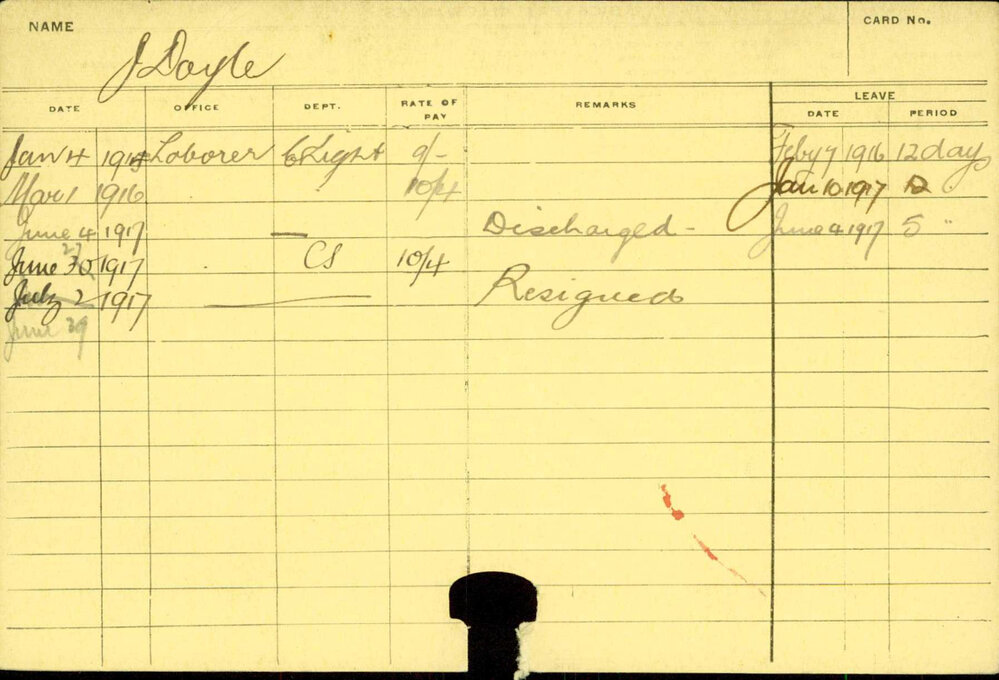 NAME
CARD No.
J Doyle
DATE OFFICE DEPT. RATE OF PAY REMARKS LEAVE DATE PERIOD
Jan 4 Laborer E Light 9/- Feby 7 1916 12 days
Mar 1 1916 10/4 Jan 10 1917 12
June 4 1917 — Discharged - June 4 1917 5 "
27
June 30 1917 CS 10/4
July 2 1917 — Resigned
June 29